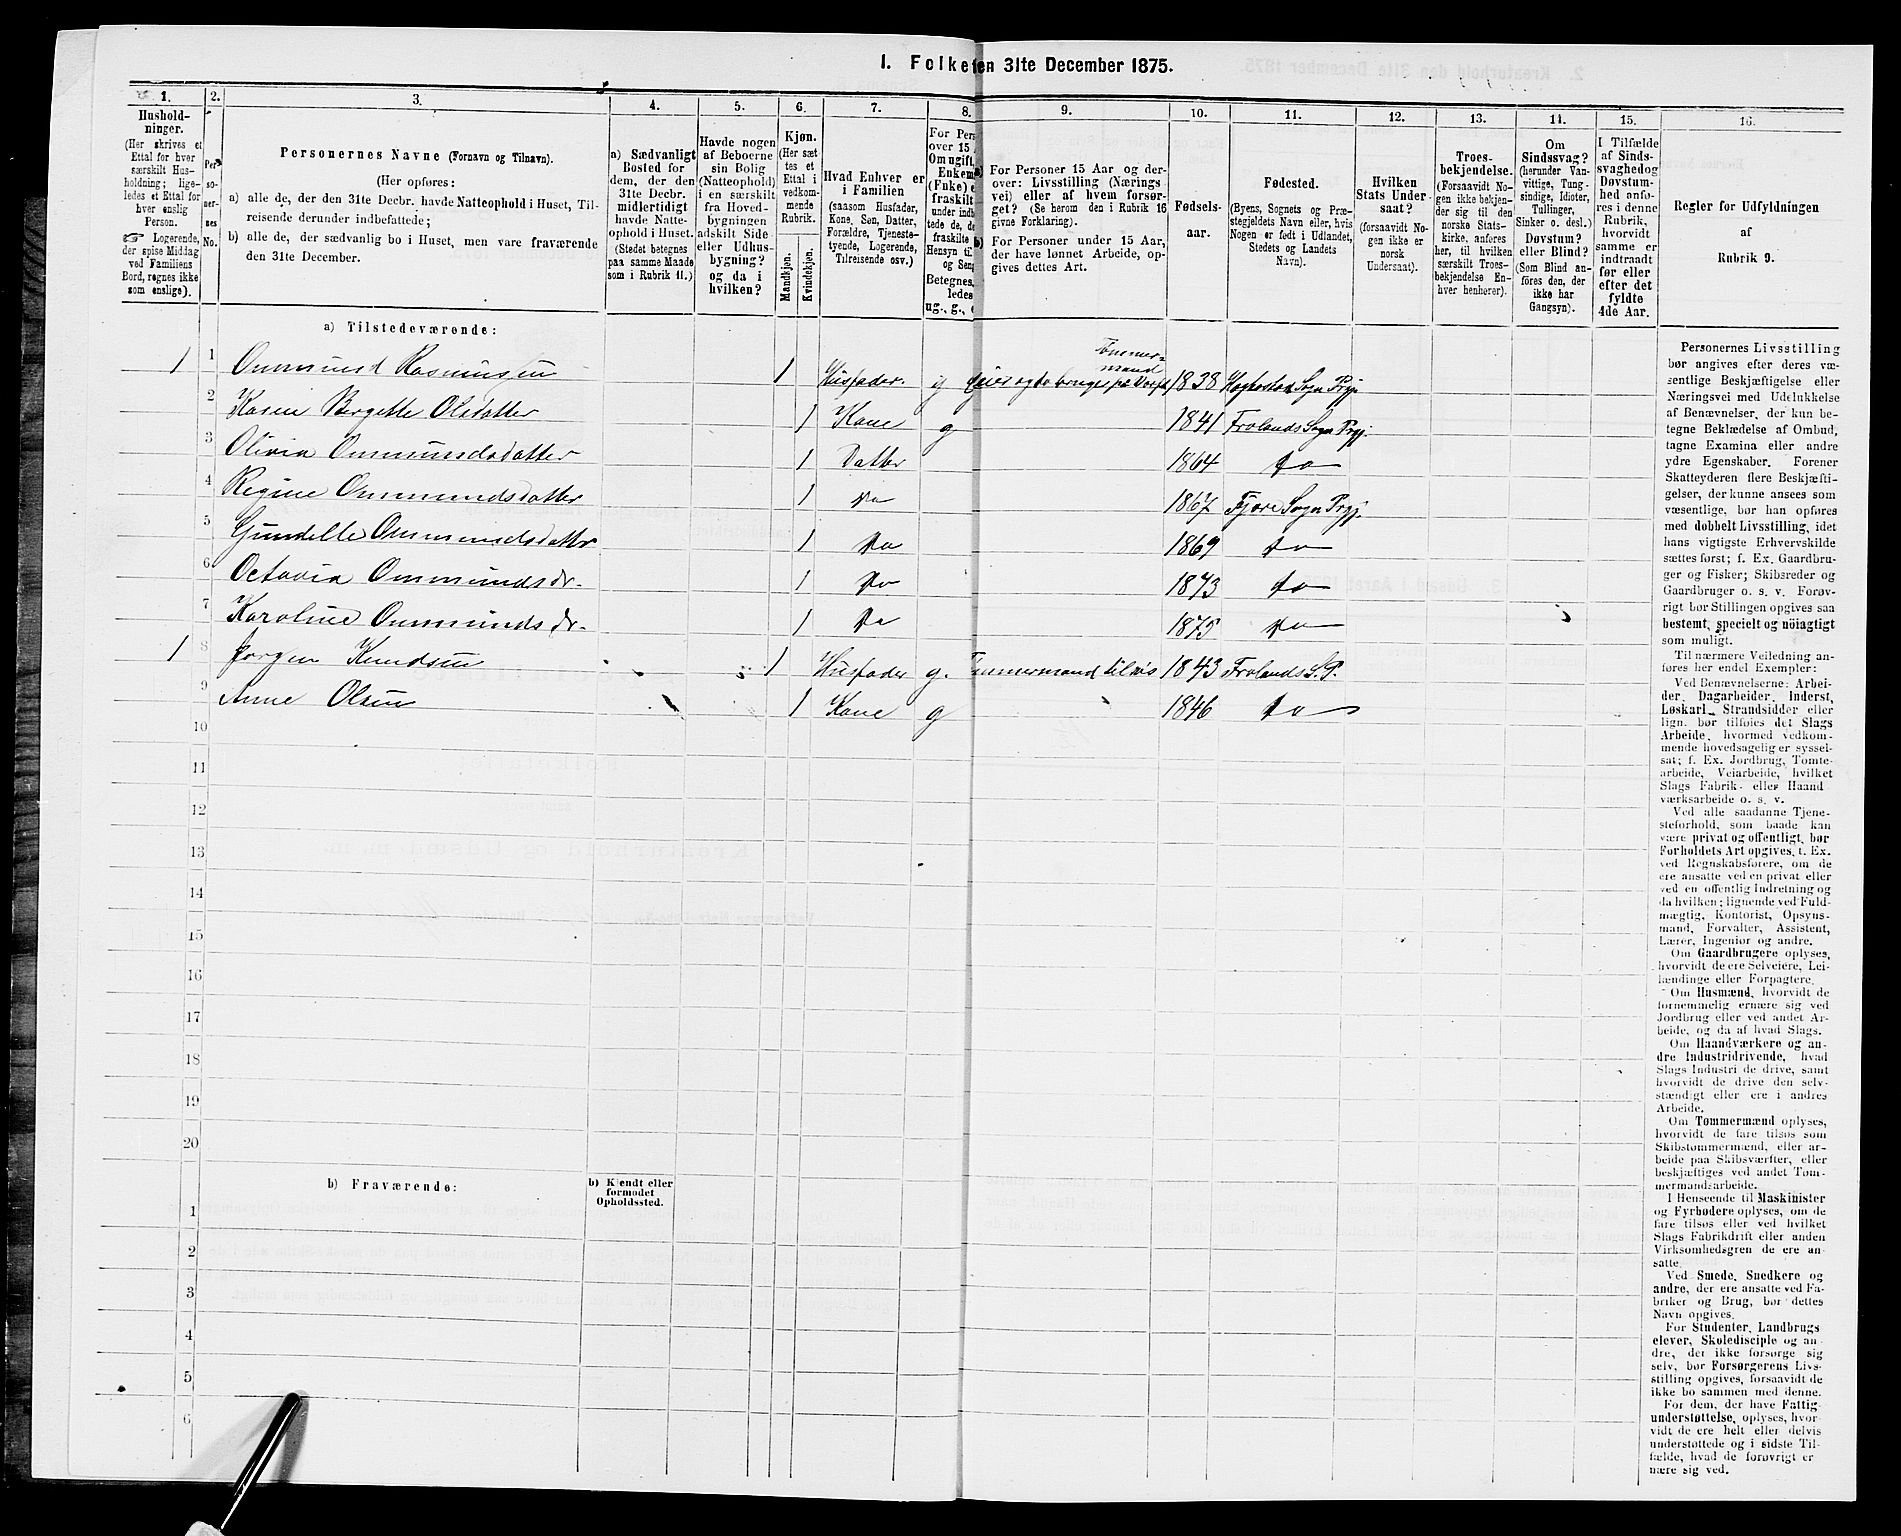 1. Folketen 31te December 1875.
1. 2. 3. 4. 5. 6. 7. 8. 9. 10. 11. 12. 13. 14. 15. 16.
Hushold-
ninger.
(Her skrives et
Ettal for hver
særskilt Hus-
holdning; lige-
ledes et Ettal for
hver enslig
Person.
☞ Logerende,
der spise Middag
ved Familiens
Bord, regnes ikke
som enslige).
Per-
so-
ner-
nes
No.
Personernes Navne (Fornavn og Tilnavn).
(Her opføres:
a) alle de, der den 31te Decbr. havde Natteophold i Huset, Til-
reisende derunder indbefattede;
b) alle de, der sædvanlig bo i Huset, men vare fraværende
den 31te December.
a) Sædvanligt
Bosted for
dem, der den
31te Decbr.
midlertidigt
havde Natte-
ophold i Huset.
(Stedet betegnes
paa samme Maade
som i Rubrik 11.)
Havde nogen
af Beboerne
sin Bolig
(Natteophold)
i en særskilt
fra Hoved-
bygningen
adskilt Side-
eller Udhus-
bygning?
og da i
hvilken?
Kjøn.
(Her sæt-
tes et
Ettal i
vedkom-
mende
Rubrik.
Mandkjøn.
Kvindekjøn.
Hvad Enhver er
i Familien
(saasom Husfader,
Kone, Søn, Datter,
Forældre, Tjeneste-
tyende, Logerende,
Tilreisende osv.)
For Pers
over 15
Om ugift,
Enkem
(Enke) e
fraskilt
under indb
tede de, de
fraskilte
Hensyn til
og Sen
Betegnes,
ledes
ug., g., e
For Personer 15 Aar og der-
over: Livsstilling (Nærings-
vei) eller af hvem forsør-
get? (Se herom den i Rubrik 16
givne Forklaring).
For Personer under 15 Aar,
der have lønnet Arbeide, op-
gives dettes Art.
Fødsels-
aar.
Fødested.
(Byens, Sognets og Præ-
stegjeldets Navn eller, hvis
Nogen er født i Udlandet,
Stedets og Landets
Navn).
Hvilken
Stats Under-
saat?
(forsaavidt No-
gen ikke er
norsk
Undersaat).
Troes-
bekjendelse.
(Forsaavidt No-
gen ikke bekjen-
der sig til den
norske Stats-
kirke, anføres
her, til hvilken
særskilt Troes-
bekjendelse En-
hver henhører).
Om
Sindssvag?
(herunder Van-
vittige, Tung-
sindige, Idioter,
Tullinger,
Sinker o. desl.)
Døvstum?
eller Blind?
(Som Blind an-
føres den, der
ikke har
Gangsyn).
I Tilfælde
af Sinds-
svaghed og
Døvstum-
hed anfø-
res i denne
Rubrik,
hvorvidt
samme er
indtraadt
før eller
efter det
fyldte
4de Aar.
Regler for Udfyldningen
af
Rubrik 9.
a) Tilstedeværende:
1 1 Ommund Rasmussen 1 Husfader. g Tømmer-
mand 1838 Sogn Prgj.
2 Karen Bergette Olsdatter 1 Kone g 1841 Frolands Sogn Prgj.
3 Olivia Ommundsdatter 1 Datter 1864 do
4 Regine Ommundsdatter 1 do 1867 Fjære Sogn Prgj.
5 Gundelle Ommundsdatter 1 do 1869 do
6 Octavia Ommundsdr. 1 do 1873 do
7 Karoline Ommundsdr. 1 do 1875 do
1 8 Jørgen Knudsen 1 Husfader g. Tømmermand tilvis 1843 Frolands S. P.
9 Anne Olsen 1 Kone g 1846 do
10
11
12
13
14
15
16
17
18
19
20
b) Fraværende:
b) Kjendt eller
formodet
Opholdssted.
1
2
3
4
5
6
Personernes Livsstilling
bør angives efter deres væ-
sentlige Beskjæftigelse eller
Næringsvei med Udelukkelse
af Benævnelser, der kun be-
tegne Beklædelse af Ombud,
tagne Examina eller andre
ydre Egenskaber. Forener
Skatteyderen flere Beskjæfti-
gelser, der kunne ansees som
væsentlige, bør han opføres
med dobbelt Livsstilling, idet
hans vigtigste Erhvervskilde
sættes først; f. Ex. Gaardbru-
ger og Fisker; Skibsreder og
Gaardbruger o. s. v. Forøv-
rigt bør Stillingen opgives saa
bestemt, specielt og nøiagtigt
som muligt.
Til nærmere Veiledning an-
føres her endel Exempler:
Ved Benævnelserne: Arbei-
der, Dagarbeider, Inderst,
Løskarl, Strandsidder eller
lign. bør tilføies det Slags
Arbeide, hvormed vedkom-
mende hovedsagelig er syssel-
sat; f. Ex. Jordbrug, Tomte-
arbeide, Veiarbeide, hvilket
Slags Fabrik- eller Haand-
værksarbeide o. s. v.
Ved alle saadanne Tjene-
steforhold, som baade kan
være privat og offentligt, bør
Forholdets Art opgives, t. Ex.
ved Regnskabsførere, om de
ere ansatte ved en privat eller
ved en offentlig Indretning og
da hvilken; lignende ved Fuld-
mægtig, Kontorist, Opsyns-
mand, Forvalter, Assistent,
Lærer, Ingeniør og andre.
Om Gaardbrugere oplyses,
hvorvidt de ere Selveiere, Lei-
lændinge eller Forpagtere.
Om Husmænd, hvorvidt de
fornemmelig ernære sig ved
Jordbrug eller ved andet Ar-
beide, og da af hvad Slags.
Om Haandværkere og an-
dre Industridrivende, hvad
Slags Industri de drive, samt
hvorvidt de drive den selv-
stændigt eller ere i andres
Arbeide.
Om Tømmermænd oplyses,
hvorvidt de fare tilsøs som
Skibstømmermænd, eller ar-
beide paa Skibsværfter, eller
beskjæftiges ved andet Tøm-
mermandsarbeide.
I Henseende til Maskinister
og Fyrbødere oplyses, om de
fare tilsøs eller ved hvilket
Slags Fabrikdrift eller anden
Virksomhedsgren de ere an-
satte.
Ved Smede, Snedkere og
andre, der ere ansatte ved Fa-
briker og Brug, bør dettes
Navn opgives.
For Studenter, Landbrugs-
elever, Skoledisciple og an-
dre, der ikke forsørge sig
selv, bør Forsørgerens Livs-
stilling opgives, forsaavidt de
ikke bo sammen med denne.
For dem, der have Fattig-
understøttelse, oplyses, hvor-
vidt de ere helt eller delvis
understøttede og i sidste Til-
fælde, hvad de forøvrigt er-
nære sig ved.